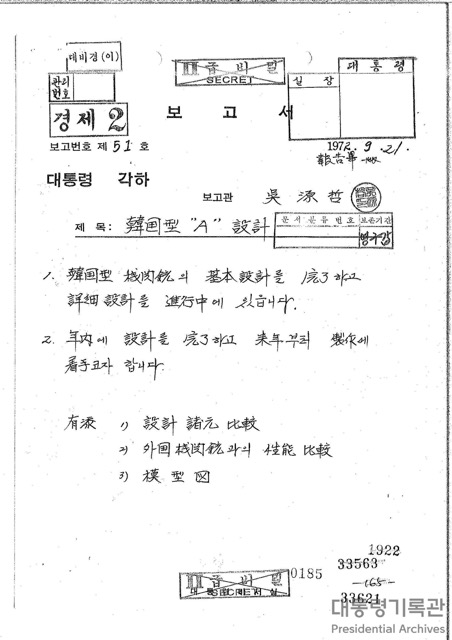 대비경(이)
관리
번호
경제 2
Ⅱ급비밀
SECRET
실장
대통령
보고서
보고번호 제 51 호
1972. 9. 21.
報告畢
대통령 각하
보고관 吳源哲
제 목: 韓国型 "A" 設計
문서분류번호
보존기간
영구
1. 韓国型 機関銃의 基本設計를 完了하고
詳細設計를 進行中에 있습니다.
2. 年内에 設計를 完了하고 来年부터 製作에
着手코자 합니다.
有添 1) 設計 諸元 比較
2) 外国機関銃과의 性能 比較
3) 模型図
Ⅱ급비밀
SECRET
0185
1922
33563
-165-
33621
대통령기록관
Presidential Archives